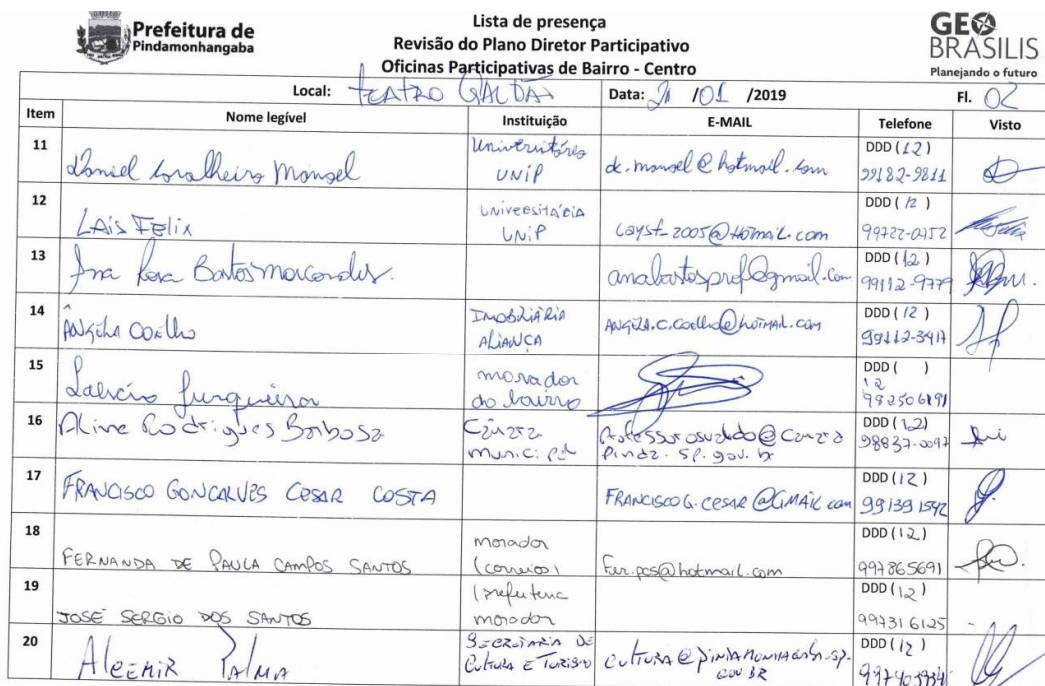 Prefeitura de
Pindamonhangaba
Lista de presença
Revisão do Plano Diretor Participativo
Oficinas Participativas de Bairro - Centro
GEO
BRASILIS
Planejando o futuro
Local: TEATRO GALPÃO Data: 21 /01 /2019 Fl. 02
Item Nome legível Instituição E-MAIL Telefone Visto
11 Daniel Manoel Universitário UNIP dc.manoel@hotmail.com DDD (12) 99182-9811
12 LAÍS FELIX UNIVERSITÁRIA UNIP Layst_2005@HOTMAIL.com DDD (12) 99722-0452
13 Ana Rosa Bastos Marcondes. anabastosprof@gmail.com DDD (12) 99112-9779
14 ÂNGELA COELHO IMOBILIÁRIA ALIANÇA ANGELA.C.COELHO@HOTMAIL.COM DDD (12) 99112-3417
15 Junqueira morador do bairro DDD ( ) 12 982506191
16 Aline Rodrigues Barbosa Câmara Municipal Professorosvaldo@Camara Pinda.SP.gov.br DDD (12) 98837-0097
17 FRANCISCO GONÇALVES CESAR COSTA FRANCISCOG.CESAR@GMAIL.com DDD (12) 991391542
18 FERNANDA DE PAULA CAMPOS SANTOS morador (correios) Fer.pcs@hotmail.com DDD (12) 997865691
19 JOSÉ SERGIO DOS SANTOS morador DDD (12) 997316125 -
20 Alcemir Palma SECRETARIA DE CULTURA E TURISMO CULTURA@PINDAMONHAGABA.SP.GOV.BR DDD (12)